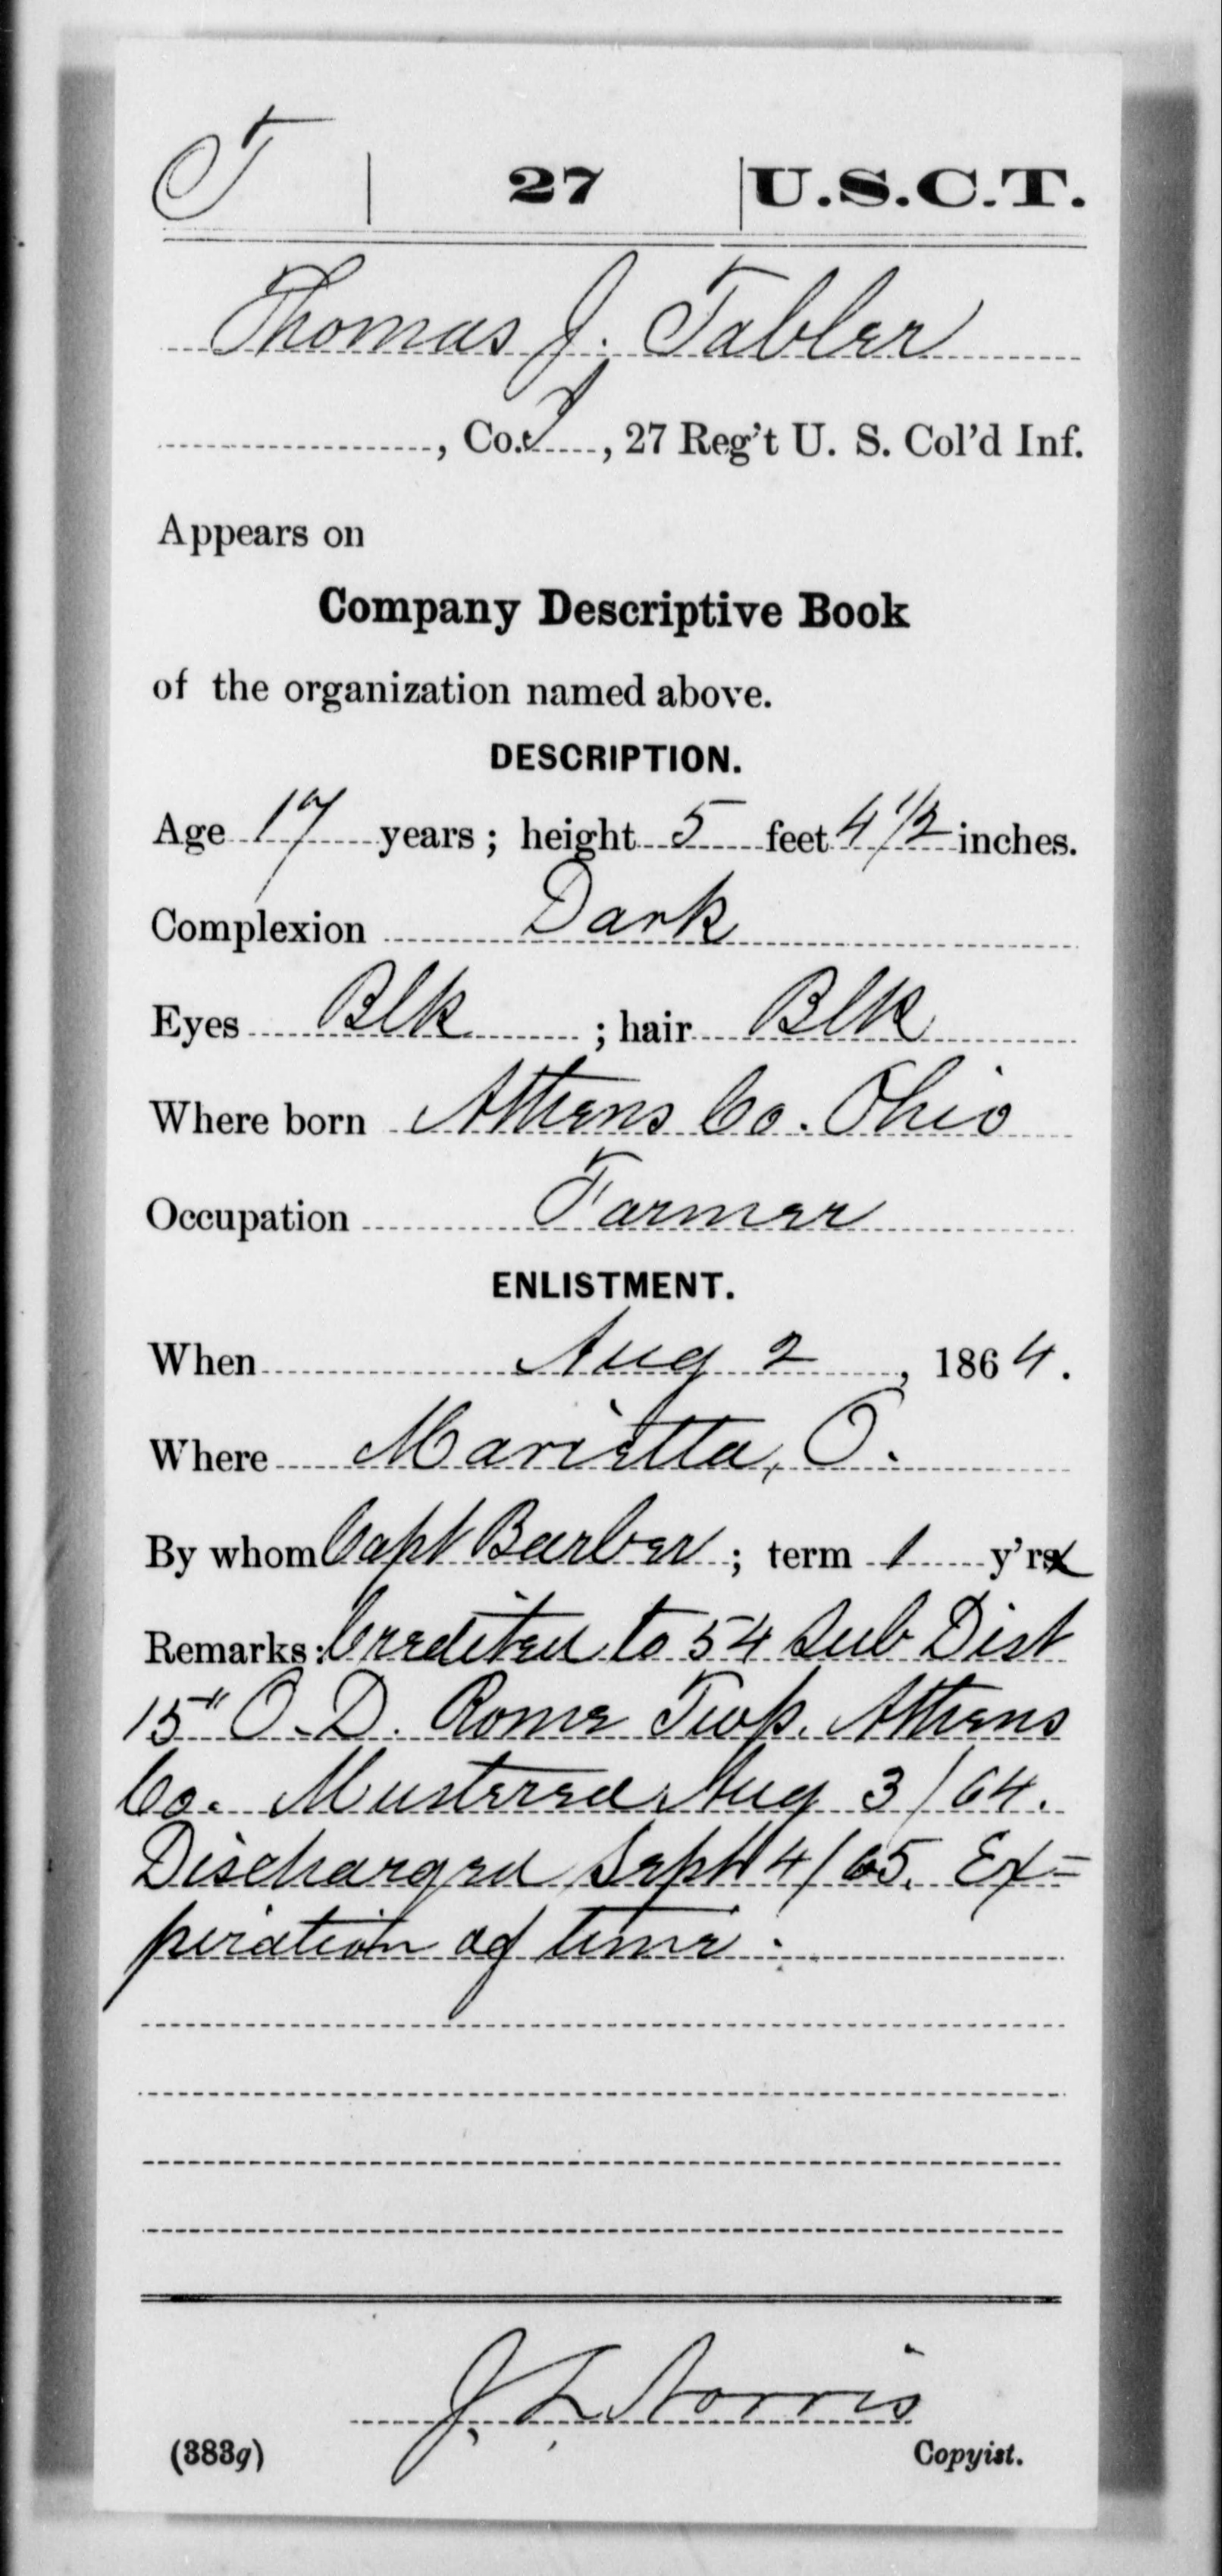 T | 27 | U.S.C.T.
Thomas J. Tabler
, Co. I, 27 Reg't U. S. Col'd Inf.
Appears on
Company Descriptive Book
of the organization named above.
DESCRIPTION.
Age 17 years; height 5 feet 4 1/2 inches.
Complexion Dark
Eyes Blk; hair Blk
Where born Athens Co. Ohio
Occupation Farmer
ENLISTMENT.
When Aug 2, 1864.
Where Marietta, O.
By whom Capt Barber; term 1 y'rs
Remarks: Credited to 54 Sub Dist
15" O.D. Rome Twp. Athens
Co. Mustered Aug 3/64.
Discharged Sept 4/65. Ex=
piration of time.
J. L. Norris
(383g) Copyist.